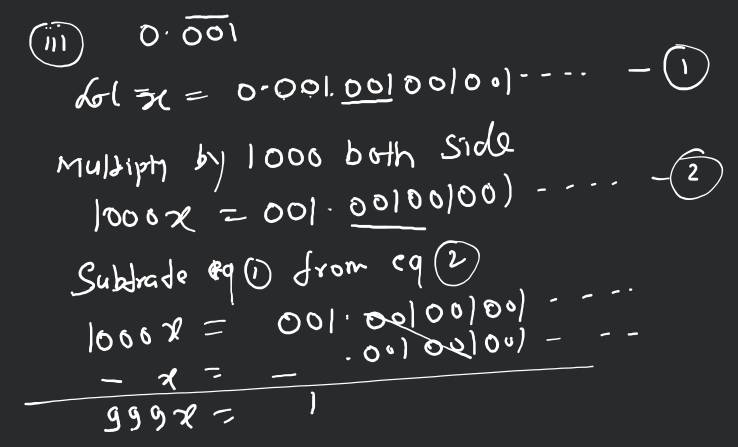 (iii) 0.\overline{001}
Let x = 0.001.001001001---- — ①
Multiply by 1000 both side
1000x = 001.001001001 ---- — ②
Subtrade eq ① from eq ②
1000x = 001.001001001 ----
- x = - .001001001 ---
999x = 1